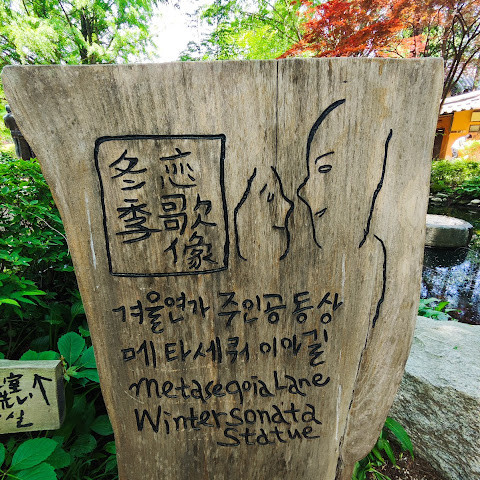 冬季
恋歌像
겨울연가 주인공동상
메타세쿼이아길
Metaceqoia Lane
Winter sonata
Statue